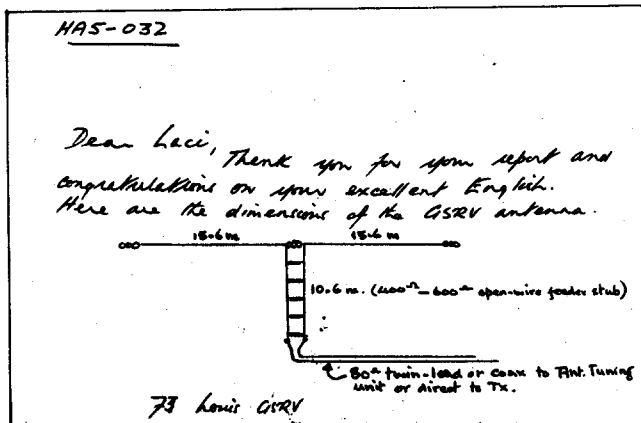 HA5-032
Dear Laci,
Thank you for your report and
congratulations on your excellent English.
Here are the dimensions of the G5RV antenna.
15.6m 15.6m
10.6m. (400Ω-600Ω open-wire feeder stub)
80Ω twin-lead or coax to Ant. Tuning
unit or direct to Tx.
73 Louis G5RV